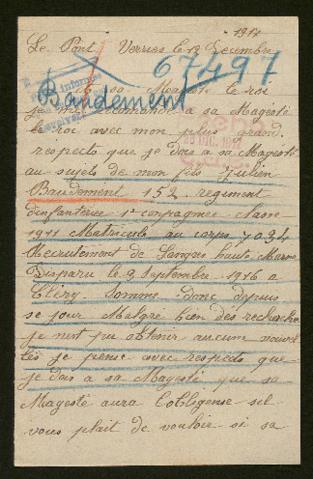 1917
Le Pont Verries le 13 Decembre
67497
Baudement
sa Majesté le roi
je me recommande a sa Magesté
le roi avec mon plus grand
respecto que je dois a sa Magesté
au sujets de mon fils Julien
Baudement 152. regiment
d'infanteries 1e compagnies classe
1911 Matricule au corps 7034
Recrutement de Langres haute Marne
Disparu le 9 Septembre 1916 a
Cléry Somme donc depuis
se jour Malgré bien des recherche
je nest pu obtenir aucum nouvel
les je pense avec respecto que
je dois a sa Magesté que sa
Magesté aura l'obligense sil
vous plait de vouloir si sa